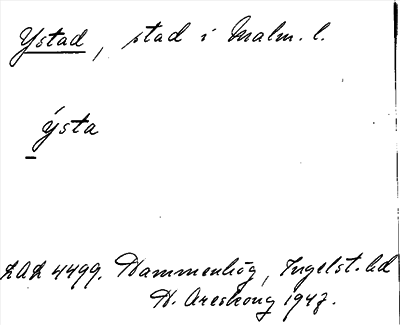 Ystad, stad i Malm. l.
ýsta
LAL 4499. Hammenhög, Ingelst. hd
H. Areskoug 1947.